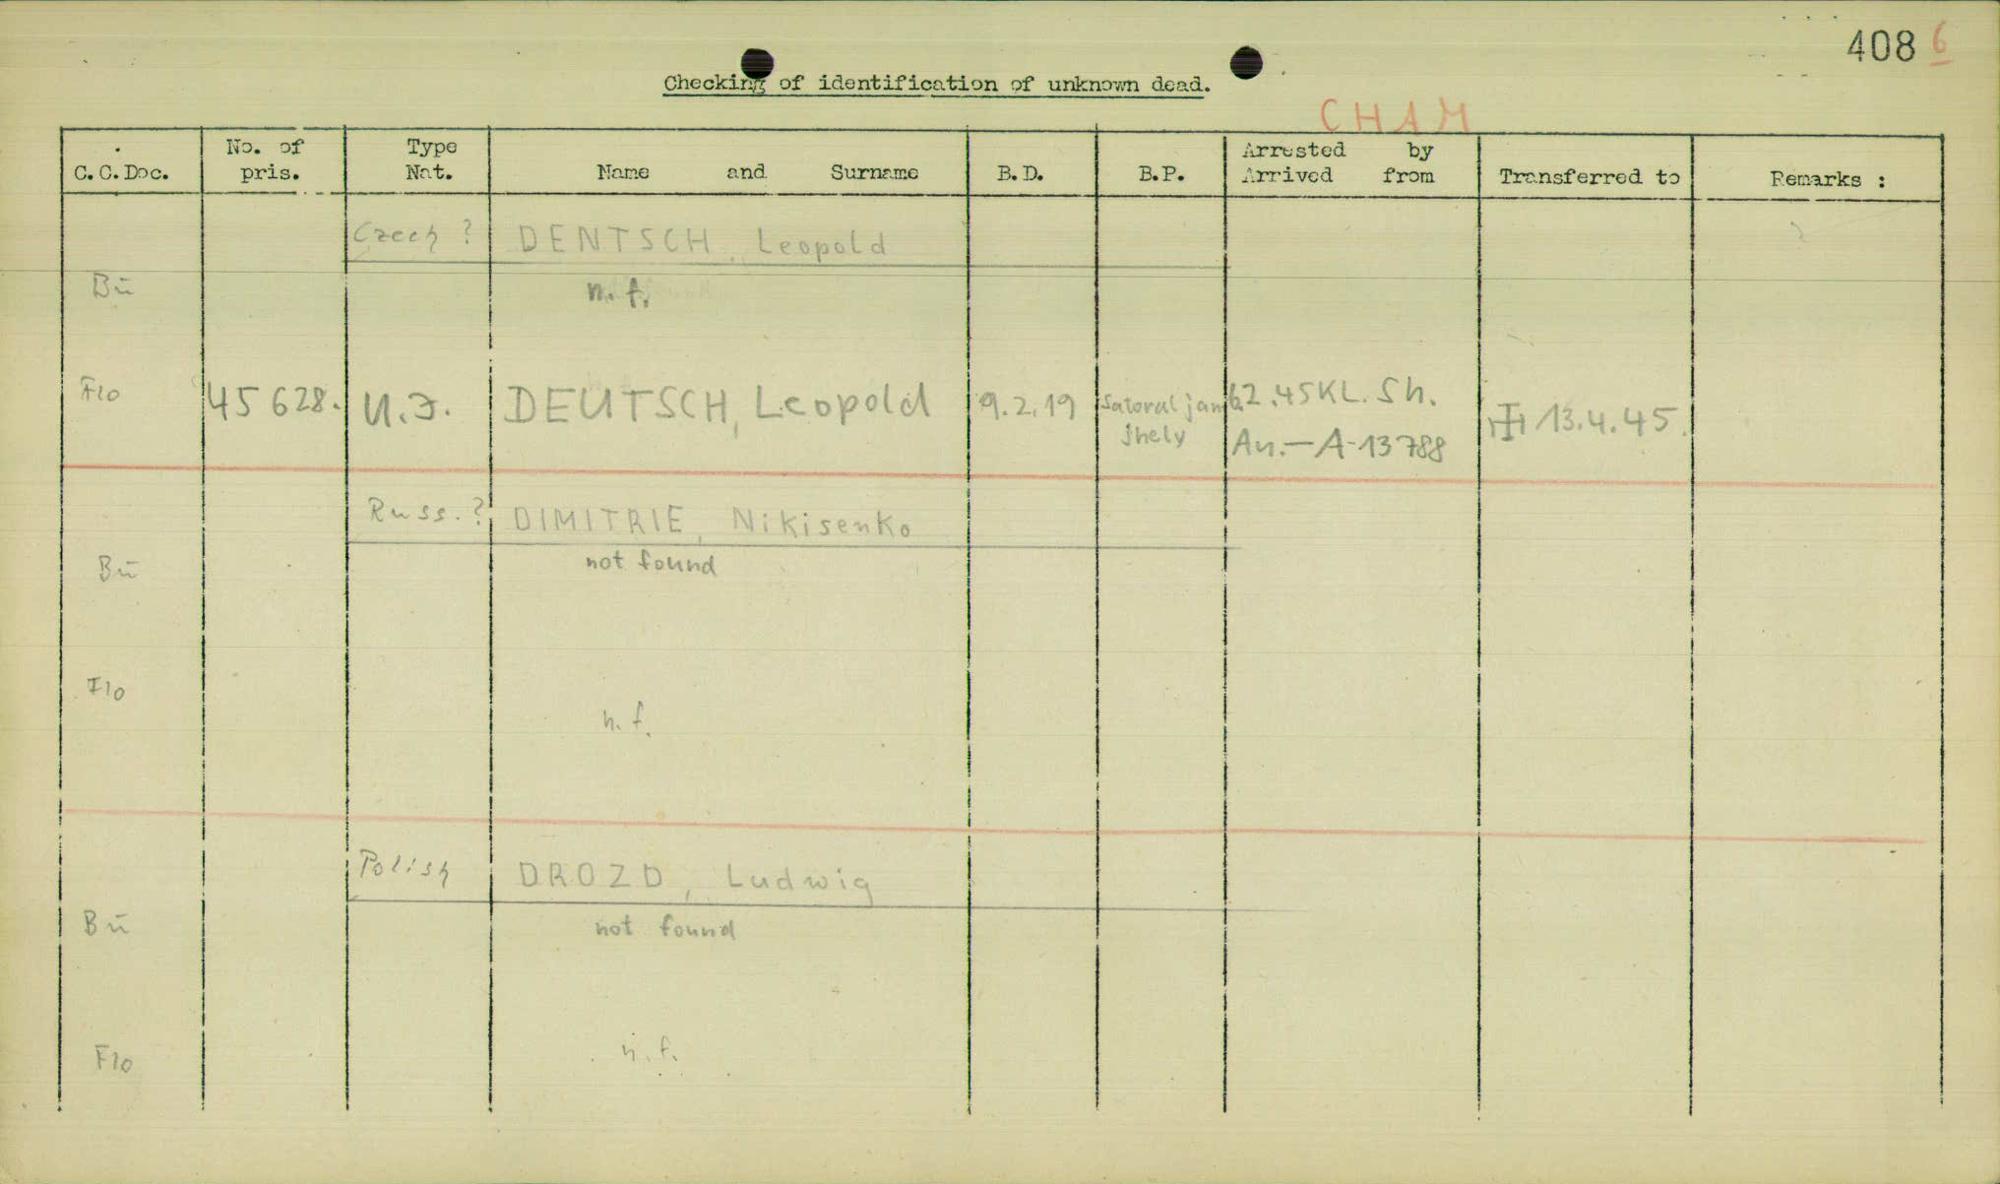 408 6
Checking of identification of unknown dead.
CHAM
C.C.Doc.
No. of pris.
Type Nat.
Name and Surname
B.D.
B.P.
Arrested by
Arrived from
Transferred to
Remarks :
Czech ? DENTSCH, Leopold
Bu n.f.
Flo 45 628. U.J. DEUTSCH, Leopold 9.2.19 6.2.45 KL. Sh.
jhely An.-A-13788 13.4.45.
Russ. ? DIMITRIE, Nikisenko
Bu not found
Flo n.f.
Polish DROZD, Ludwig
Bu not found
Flo n.f.